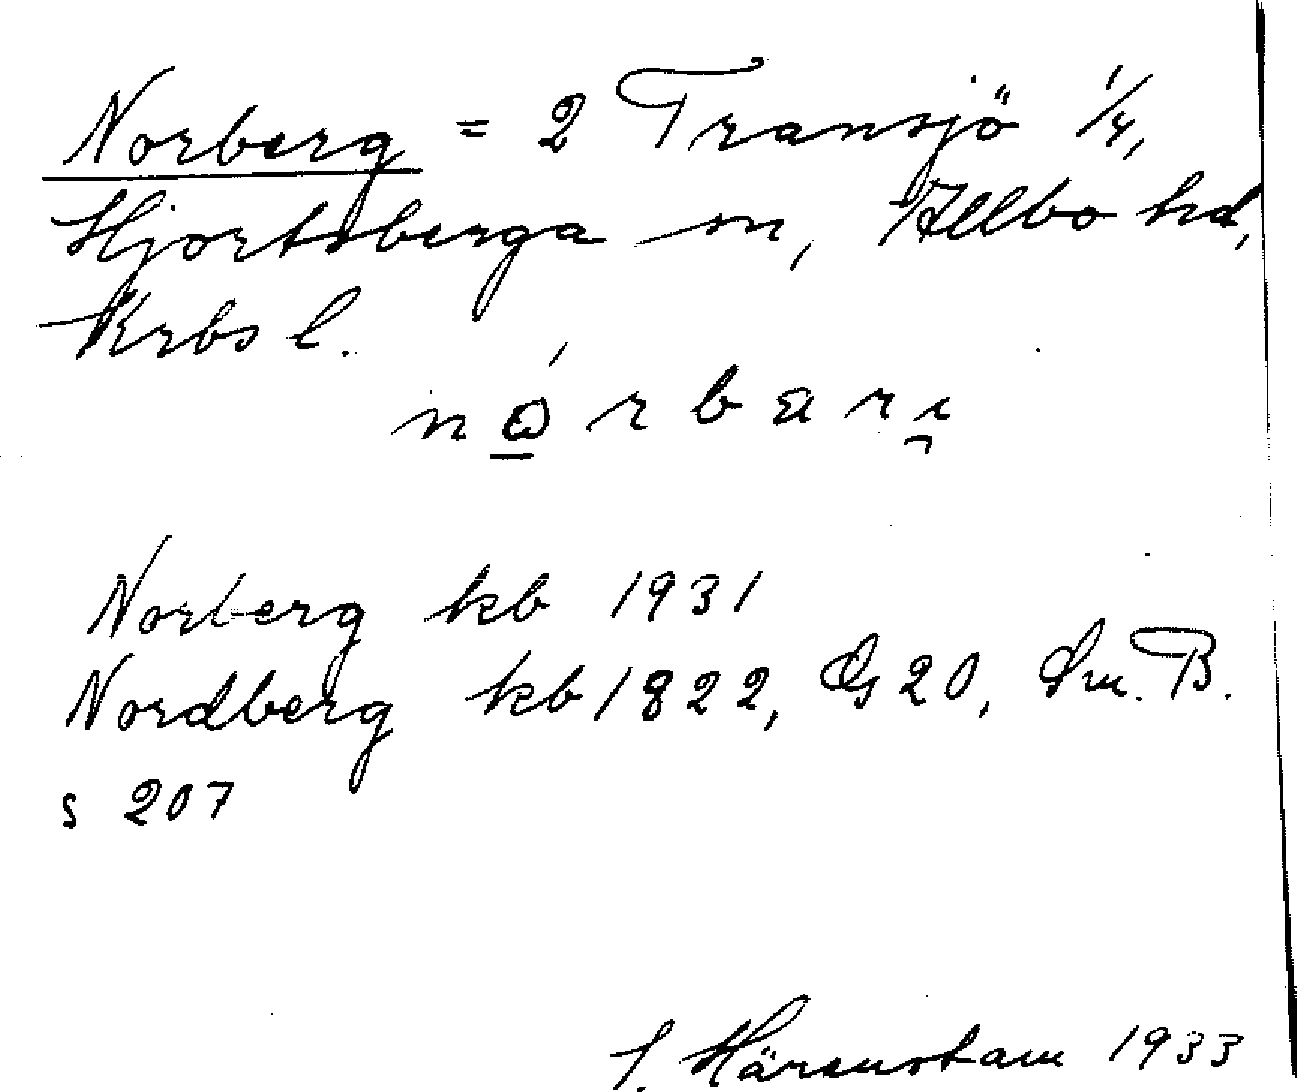 Norberg = 2 Transjö 1/4,
Hjortsberga sn, Allbo hd,
Krbs l.
nǫ́rbari̯
Norberg kb 1931
Nordberg kb 1822, G 20, Sm. B.
s 207
S. Härenstam 1933